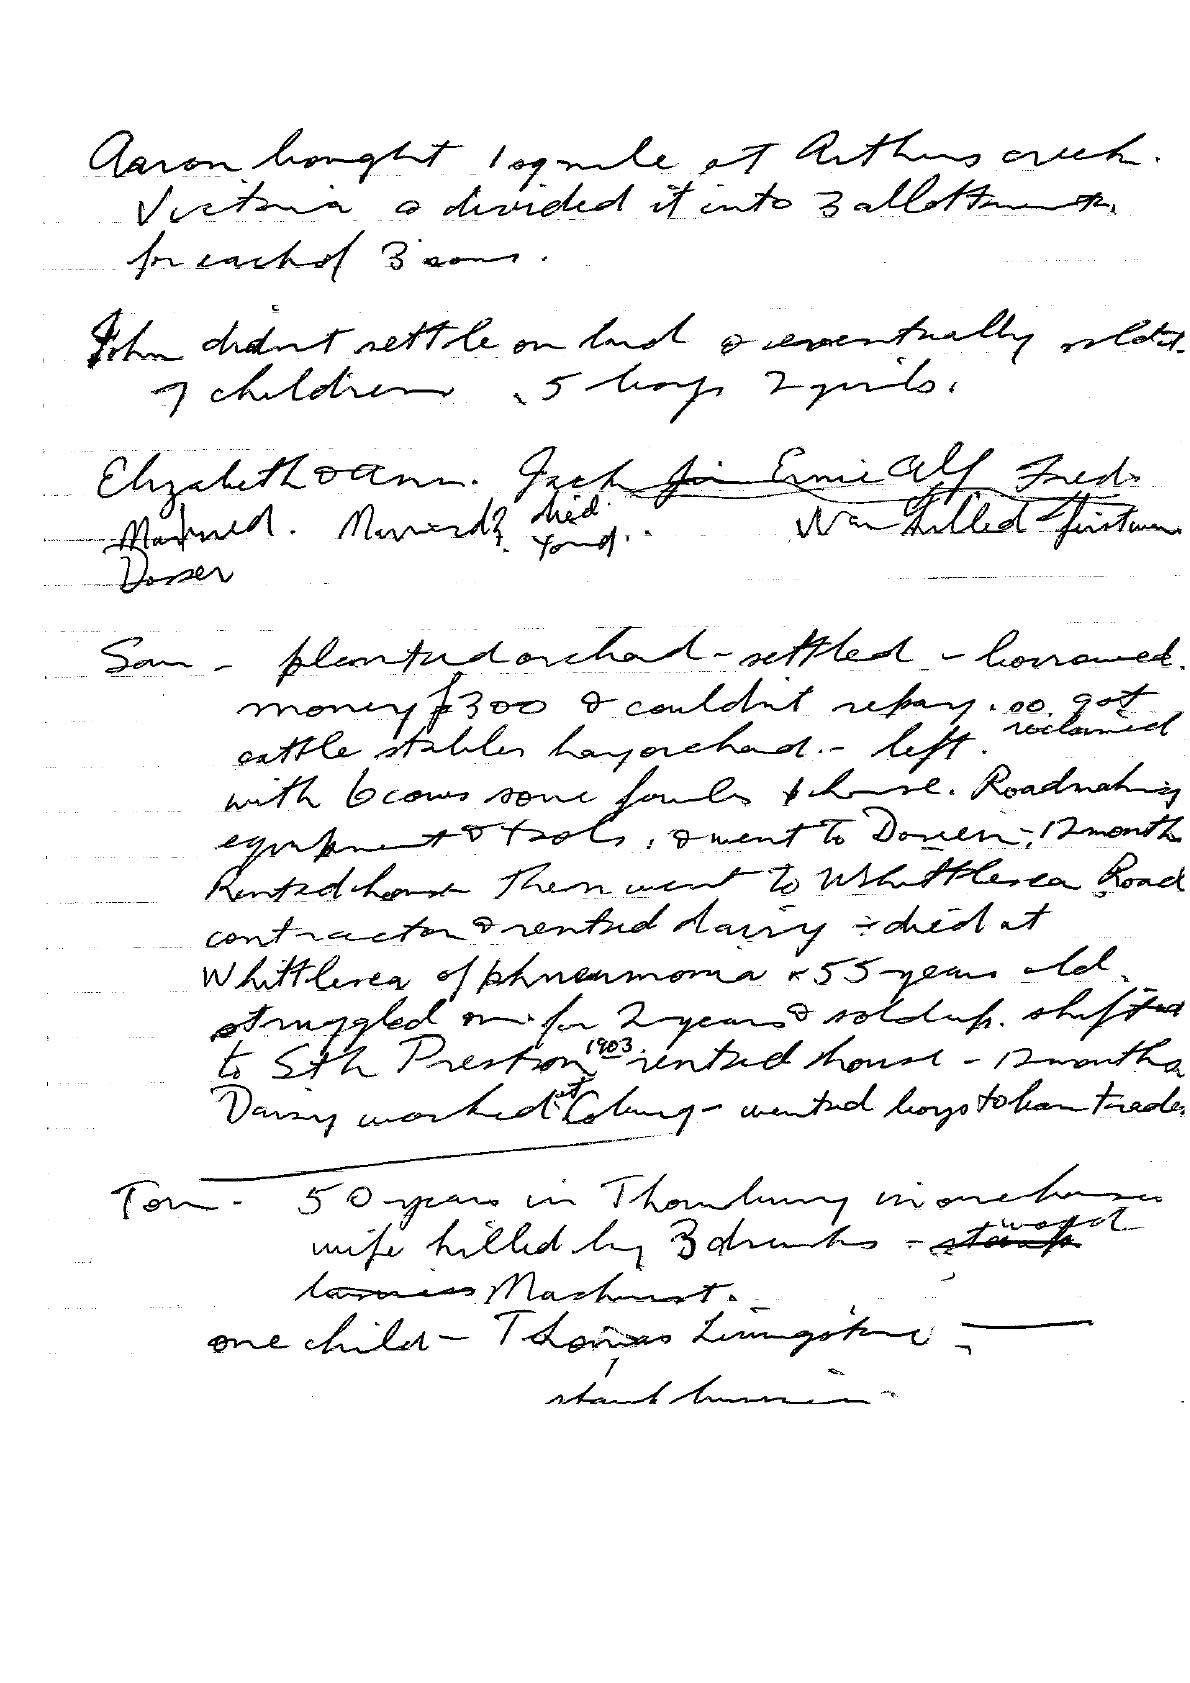 Aaron bought 1 sq mile at Arthurs creek.
Victoria & divided it into 3 allottments.
for each of 3 sons.
John didn't settle on land & eventually sold it.
7 children 5 boys 2 girls.
Elizabeth & Ann. Jack Jim Ernie Alf Fred.
Married. Married? died War killed first war
young..
Dosser
Sam - planted orchard - settled - borrowed.
money £300 & couldn't repay. so got
reclaimed
cattle stables hay orchard. - left.
with 6 cows some fowls & house. Roadmaking
equipment & tools, & went to Doreen - 12 month
Rented house then went to Whittlesea Road
contractor & rented dairy - died at
Whittlesea of phneumonia 55 years old.
struggled on for 2 years & sold up. shifted
to Sth Preston 1903 rented house - 12 months
Daisy worked at Coburg - wanted boys to learn trades
Tom - 50 years in Thornbury in one house
wife killed by 3 drunks -
Machinist.
one child - Thomas Livingstone -